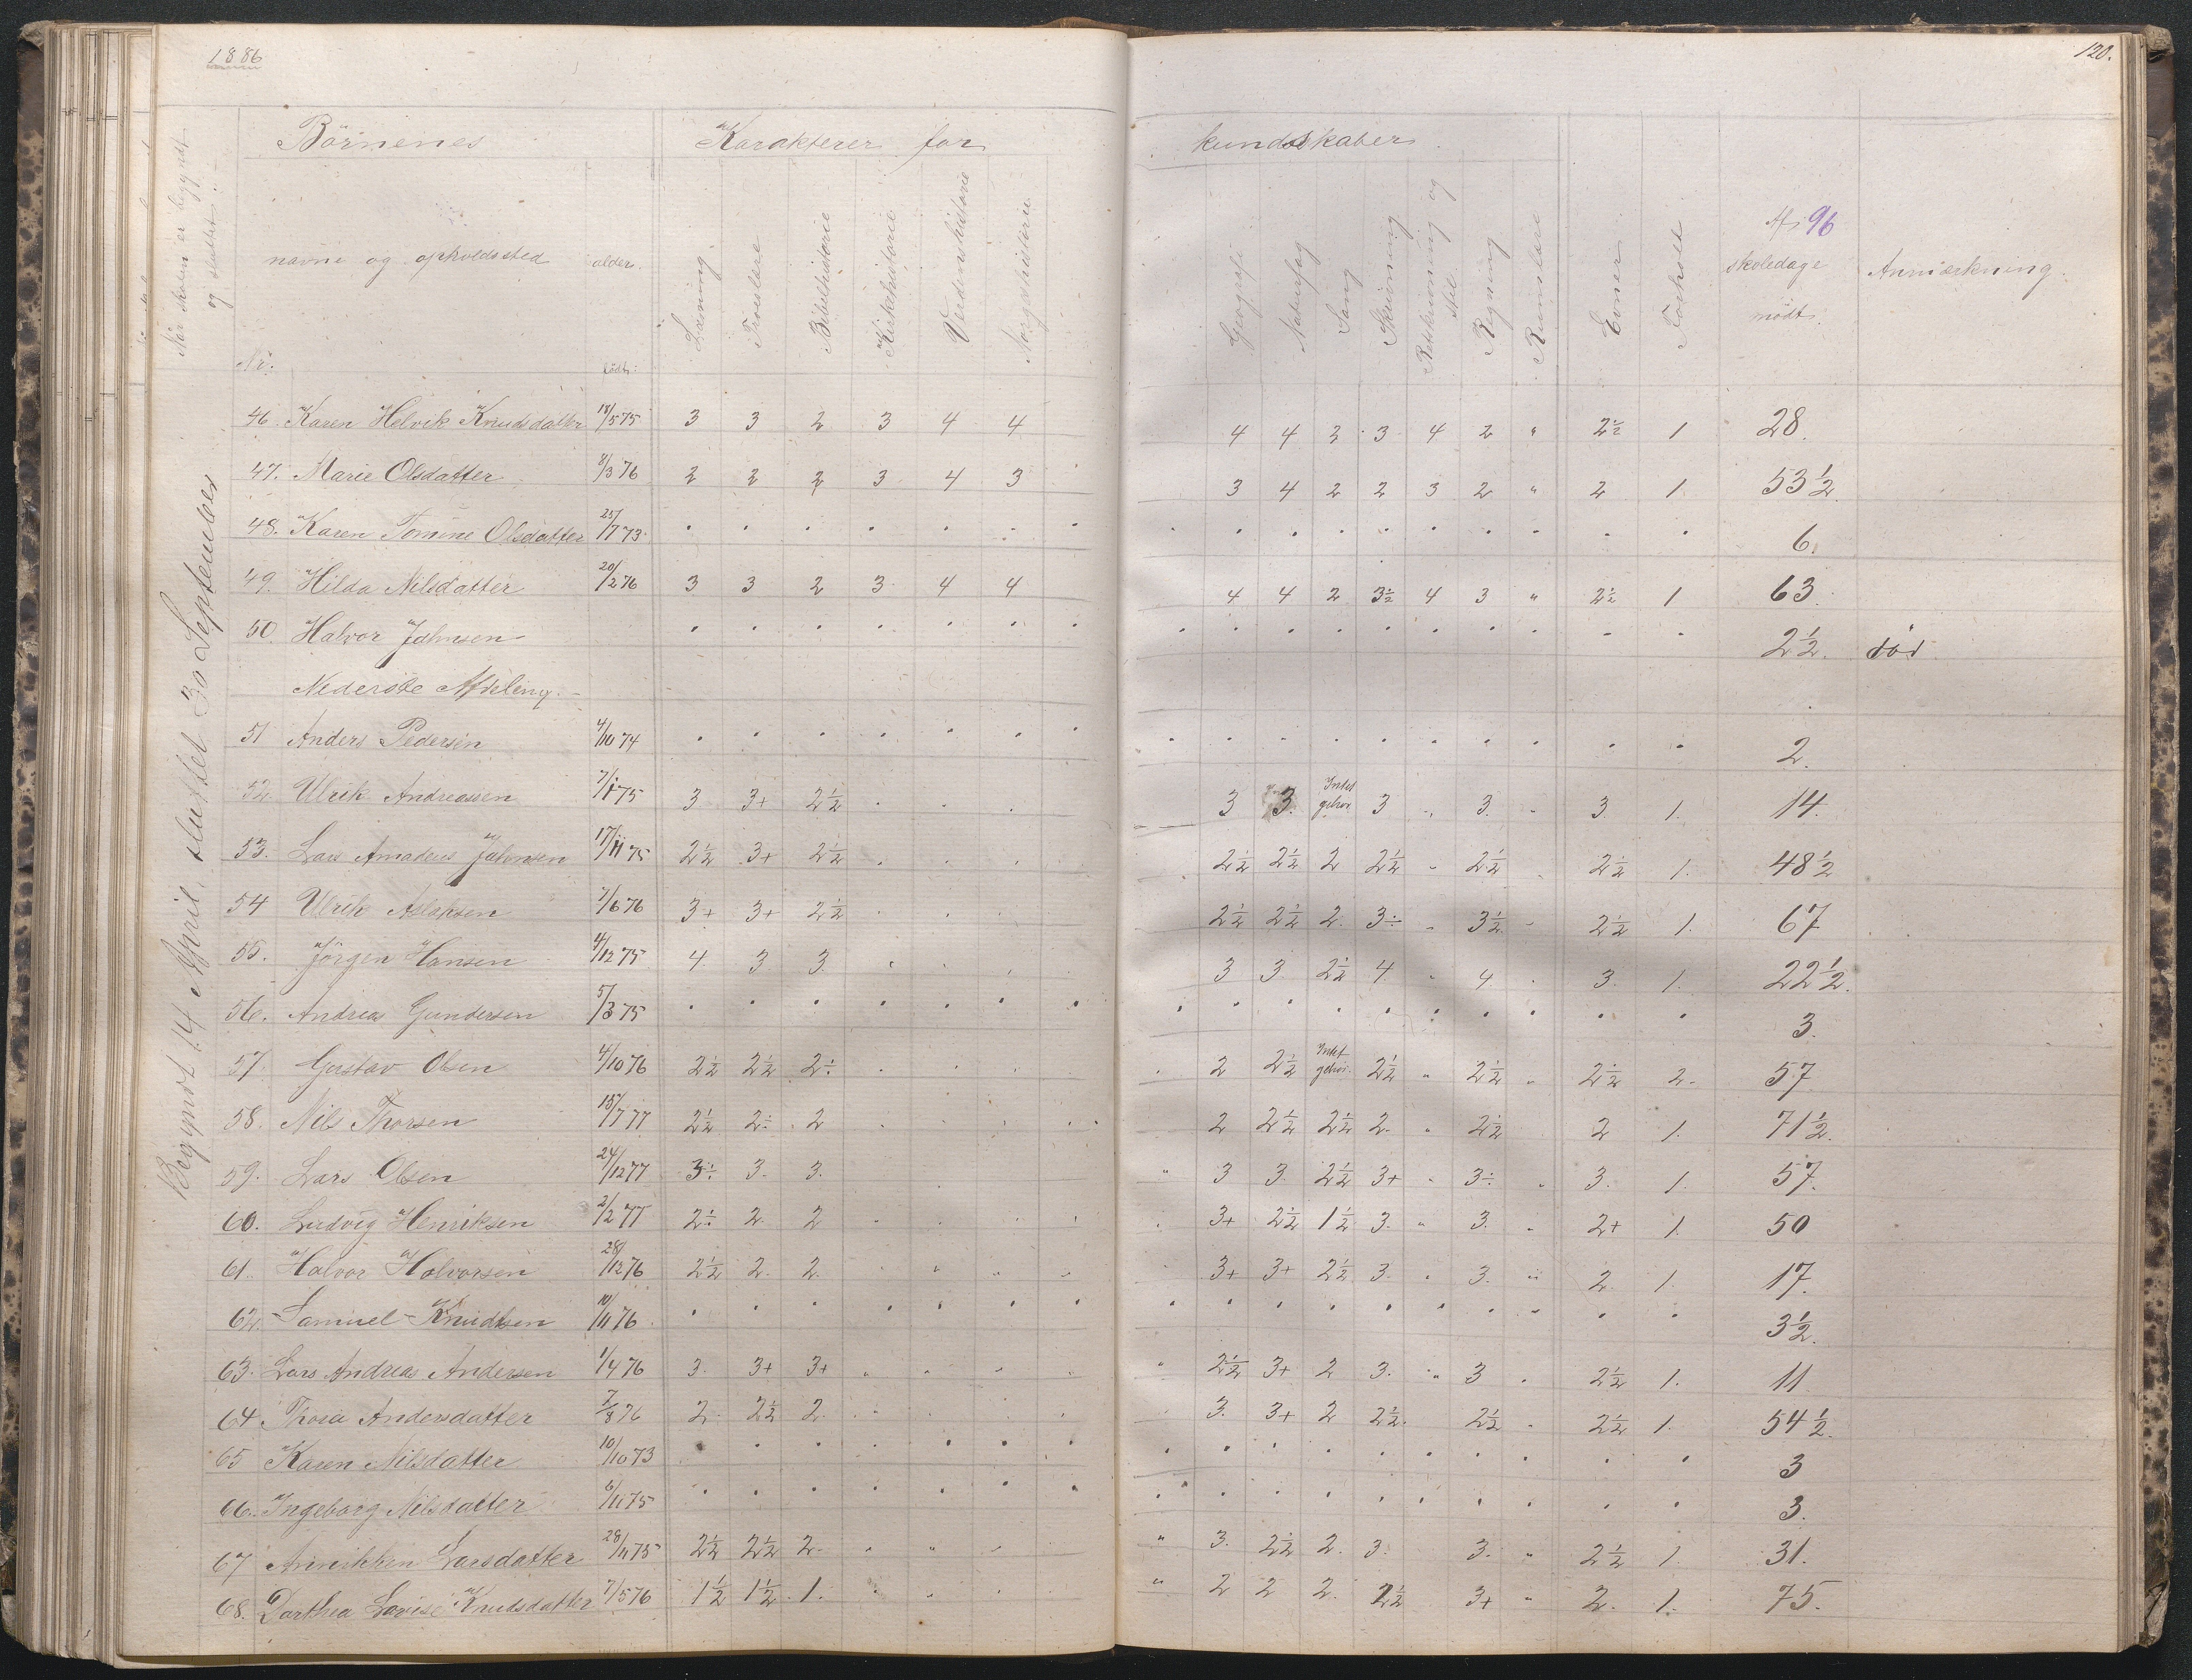 1886
120.
Börnenes
Karakterer for
kundskaber
Når skolen er begyndt og sluttet:
Nr.
navne og opholdssted
alder.
født:
Læsning
Troeslære
Bibelhistorie
Kirkehistorie
Verdenshistorie
Norgeshistorie
Geografi
Naturfag
Sang
Skrivning
Retskrivning og Stil
Regning
Rumslære
Evner
Forhold
Af 96 skoledage mødt.
Anmærkning.
Begyndt 14 April, sluttet 30 September
46. Karen Helvik Knudsdatter 18/5 75 3 3 2 3 4 4 4 4 3 3 4 2 " 2½ 1 28.
47. Marie Olsdatter 8/3 76 2 2 2 3 4 3 3 4 2 2 3 2 " 2 1. 53½.
48. Karen Tomine Olsdatter 25/7 73 6.
49. Hilda Nilsdatter 20/2 76 3 3 2 3 4 4 4 4 2 3½ 4 3 " 2½ 1 63
50. Halvor Jahnsen 2½. død
Nederste Afdeling.
51 Anders Pedersen 4/10 74 2.
52. Ulrik Andreassen 7/1 75 3 3+ 2½ 3 3. Intet gehör 3 " 3. " 3. 1. 14.
53. Lars Amadeus Jahnsen 17/11 75 2½ 3+ 2½ 2½ 2½ 2 2½ " 2½ 2½ 1. 48½
54 Ulrik Aslaksen 7/6 76 3+ 3+ 2½ 2½ 2½ 2. 3÷ " 3½ 2½ 1. 67
55. Jörgen Hansen 4/12 75 4 3 3. 3 3. 2½ 4 " 4. 3. 1. 22½.
56. Andreas Gundersen 5/3 75 3.
57 Gustav Olsen 4/10 76 2½ 2½ 2÷ 2 2½ Intet gehör. 2½ " 2½ " 2½ 2. 57
58. Nils Thorsen 15/7 77 2½ 2÷ 2 2 2½ 2½ 2. " 2½ 2 1. 71½.
59. Lars Olsen 24/12 77 3÷ 3. 3. " 3 3. 2½ 3+ " 3÷ " 3. 1. 57.
60. Ludvig Henriksen 2/2 77 2÷ 2. 2 3+ 2½ 1½ 3. " 3. " 2+ 1. 50
61. Halvor Halvorsen 28/12 76 2½ 2. 2. 3+ 3+ 2½ 3. " 3. " 2. 1. 17.
62. Samuel Knudsen 10/11 76 3½.
63. Lars Andreas Andersen 1/4 76 3. 3+ 3+ " 2½ 3+ 2 3. " 3 2½ 1. 11
64 Thora Andersdatter 7/8 76 2. 2½ 2. 3. 3+ 2 2½. 2½ " 2½ 1. 54½.
65 Karen Nilsdatter 10/10 73 3
66. Ingeborg Nilsdatter 6/11 75 3.
67 Annikken Larsdatter 28/11 75 2½ 2½ 2. " 3. 2½ 2. 3. 3. " 2½ 1. 31.
68. Darthea Lovise Knudsdatter 7/5 76 1½ 1½. 1. " 2 2 2. 2½ 3+ " 2. 1. 75.